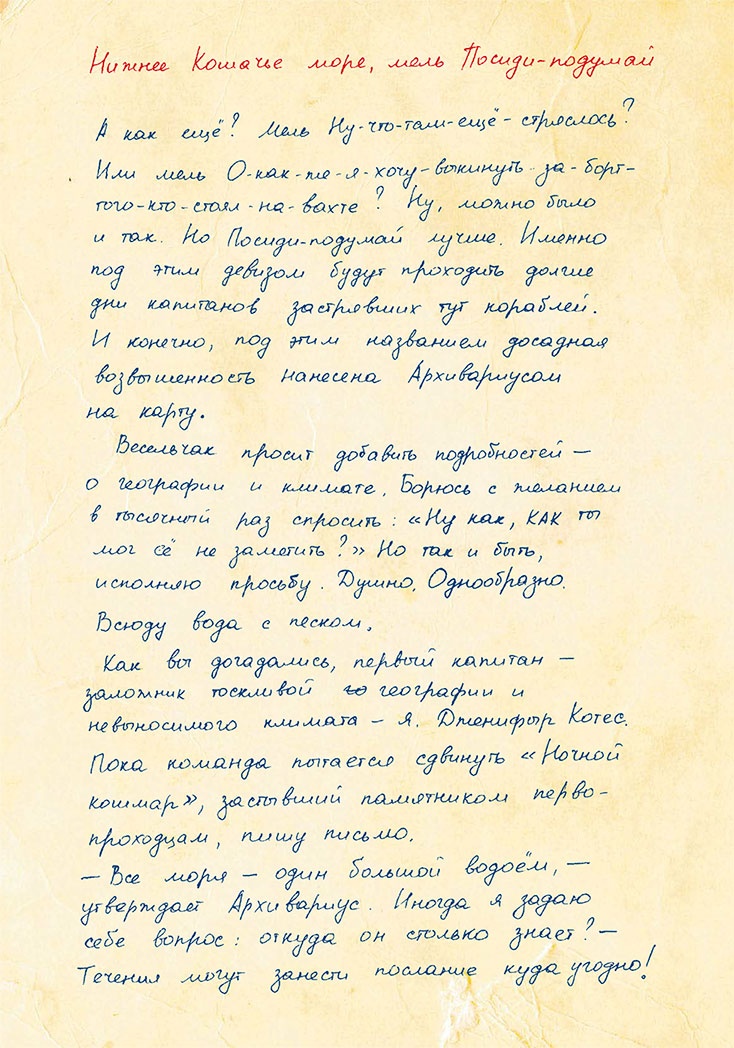 Нижнее Кошачье море, мель Посиди-подумай
А как ещё? Мель Ну-что-там-ещё-стряслось?
Или мель О-как-же-я-хочу-выкинуть-за-борт-
того-кто-стоял-на-вахте? Ну, можно было
и так. Но Посиди-подумай лучше. Именно
под этим девизом будут проходить долгие
дни капитанов застрявших тут кораблей.
И конечно, под этим названием досадная
возвышенность нанесена Архивариусом
на карту.
Весельчак просит добавить подробностей —
о географии и климате. Борюсь с желанием
в тысячный раз спросить: «Ну как, КАК ты
мог её не заметить?» Но так и быть,
исполняю просьбу. Душно. Однообразно.
Всюду вода с песком.
Как вы догадались, первый капитан —
заложник тоскливой географии и
невыносимого климата – я. Дженифыр Котес.
Пока команда пытается сдвинуть «Ночной
кошмар», застывший памятником перво-
проходцам, пишу письмо.
— Все моря — один большой водоём, —
утверждает Архивариус. Иногда я задаю
себе вопрос: откуда он столько знает? —
Течения могут занести послание куда угодно!